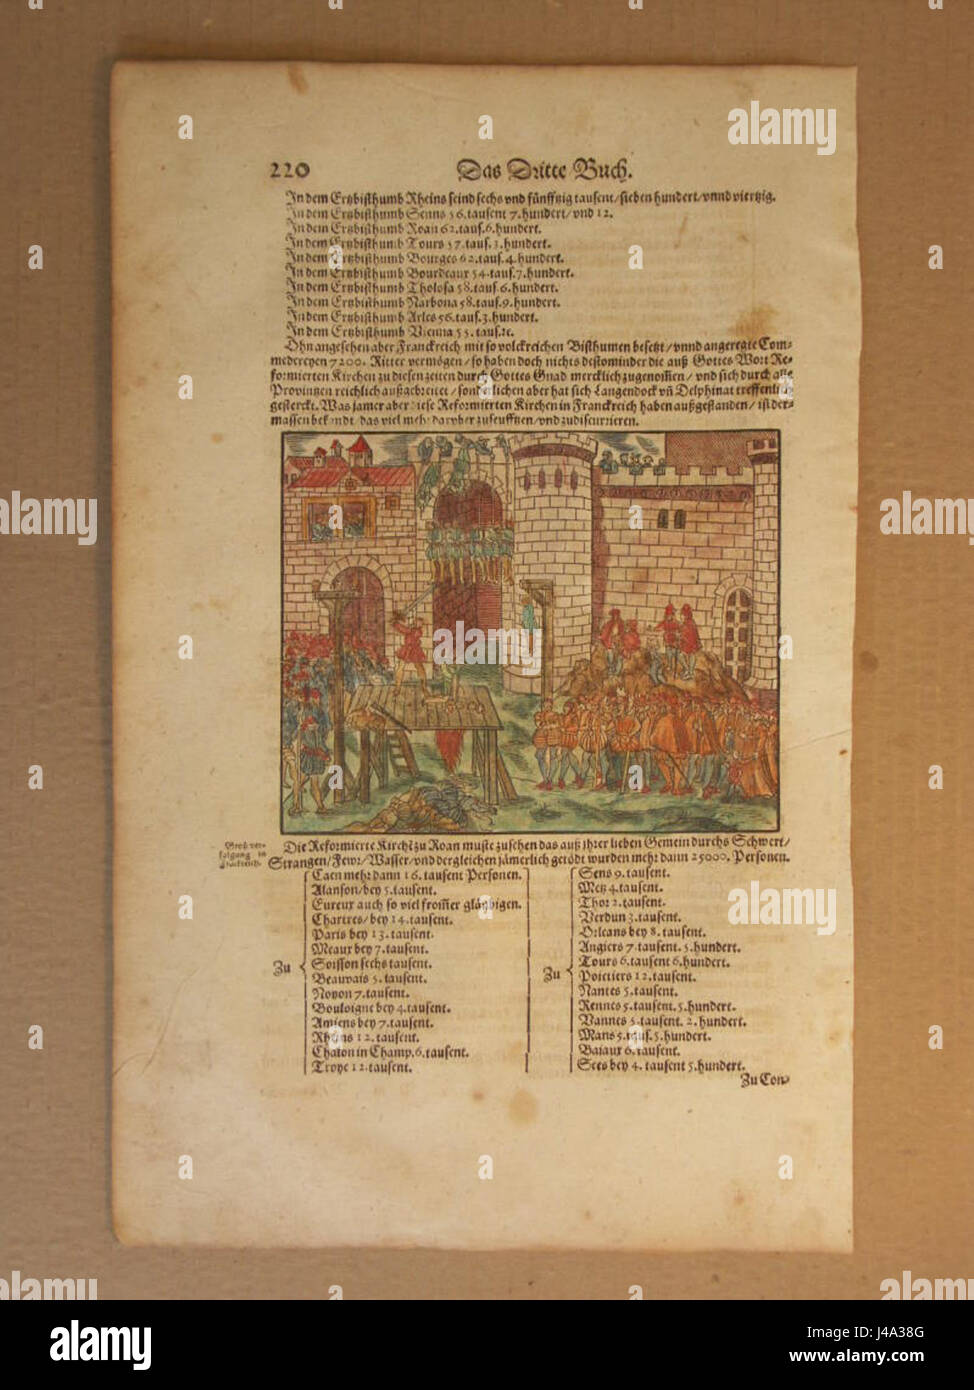 220 Das Dritte Buch.
In dem Ertzbisthumb Rheins seind sechs vnd fünfftzig tausent/sieben hundert/vnnd viertzig.
In dem Ertzbisthumb Senns 56. tausent 7. hundert/vnd 12.
In dem Ertzbisthumb Roan 62. taus. 6. hundert.
In dem Ertzbisthumb Tours 57. taus. 3. hundert.
In dem Ertzbisthumb Bourges 62. taus. 4. hundert.
In dem Ertzbisthumb Bourdeaux 54. taus. 7. hundert.
In dem Ertzbisthumb Tholosa 58. taus. 6. hundert.
In dem Ertzbisthumb Narbona 58. taus. 9. hundert.
In dem Ertzbisthumb Arles 56. taus. 3. hundert.
In dem Ertzbisthumb Vienna 55. taus. ꝛc.
Ohn angesehen aber Franckreich mit so volckreichen Bisthumen besetzt/vnnd angeregte Com-
medereyen 7200. Ritter vermögen/so haben doch nichts destominder die auß Gottes Wort Re-
formierten Kirchen zu diesen zeiten durch Gottes Gnad mercklich zugenom̃en/vnd sich durch alle
Provintzen reichlich außgebreitet/sonderlichen aber hat sich Langendock vn̄ Delphinat treffenlich
gesterckt. Was jamer aber diese Reformierten Kirchen in Franckreich haben außgestanden/ist der-
massen bekandt/das viel mehr darüber zu seufftzen/vnd zu discurrieren.
Groß ver-
folgung in
Franckreich.
Die Reformierte Kirch zu Roan muste zusehen das auß jhrer lieben Gemein durchs Schwert/
Strangen/Fewr/Wasser/vnd dergleichen jämerlich getödt wurden mehr dann 25000. Personen.
Zu
Caen mehr dann 16. tausent Personen.
Alanson/bey 5. tausent.
Eureux auch so viel from̃er gläubigen.
Chartres/bey 14. tausent.
Paris bey 13. tausent.
Meaux bey 7. tausent.
Soisson sechs tausent.
Beauvais 5. tausent.
Noyon 7. tausent.
Bouloigne bey 4. tausent.
Amiens bey 7. tausent.
Rheins 12. tausent.
Chalon in Champ. 6. tausent.
Troye 12. tausent.
Zu
Sens 9. tausent.
Metz 4. tausent.
Thor 2. tausent.
Verdun 3. tausent.
Orleans bey 8. tausent.
Angiers 7. tausent. 5. hundert.
Tours 6. tausent 6. hundert.
Poictiers 12. tausent.
Nantes 5. tausent.
Rennes 5. tausent. 5. hundert.
Vannes 5. tausent. 2. hundert.
Mans 5. taus. 5. hundert.
Baiaux 6. tausent.
Sees bey 4. tausent 5. hundert.
Zu Con-
alamy stock photo
J4A38G
www.alamy.com